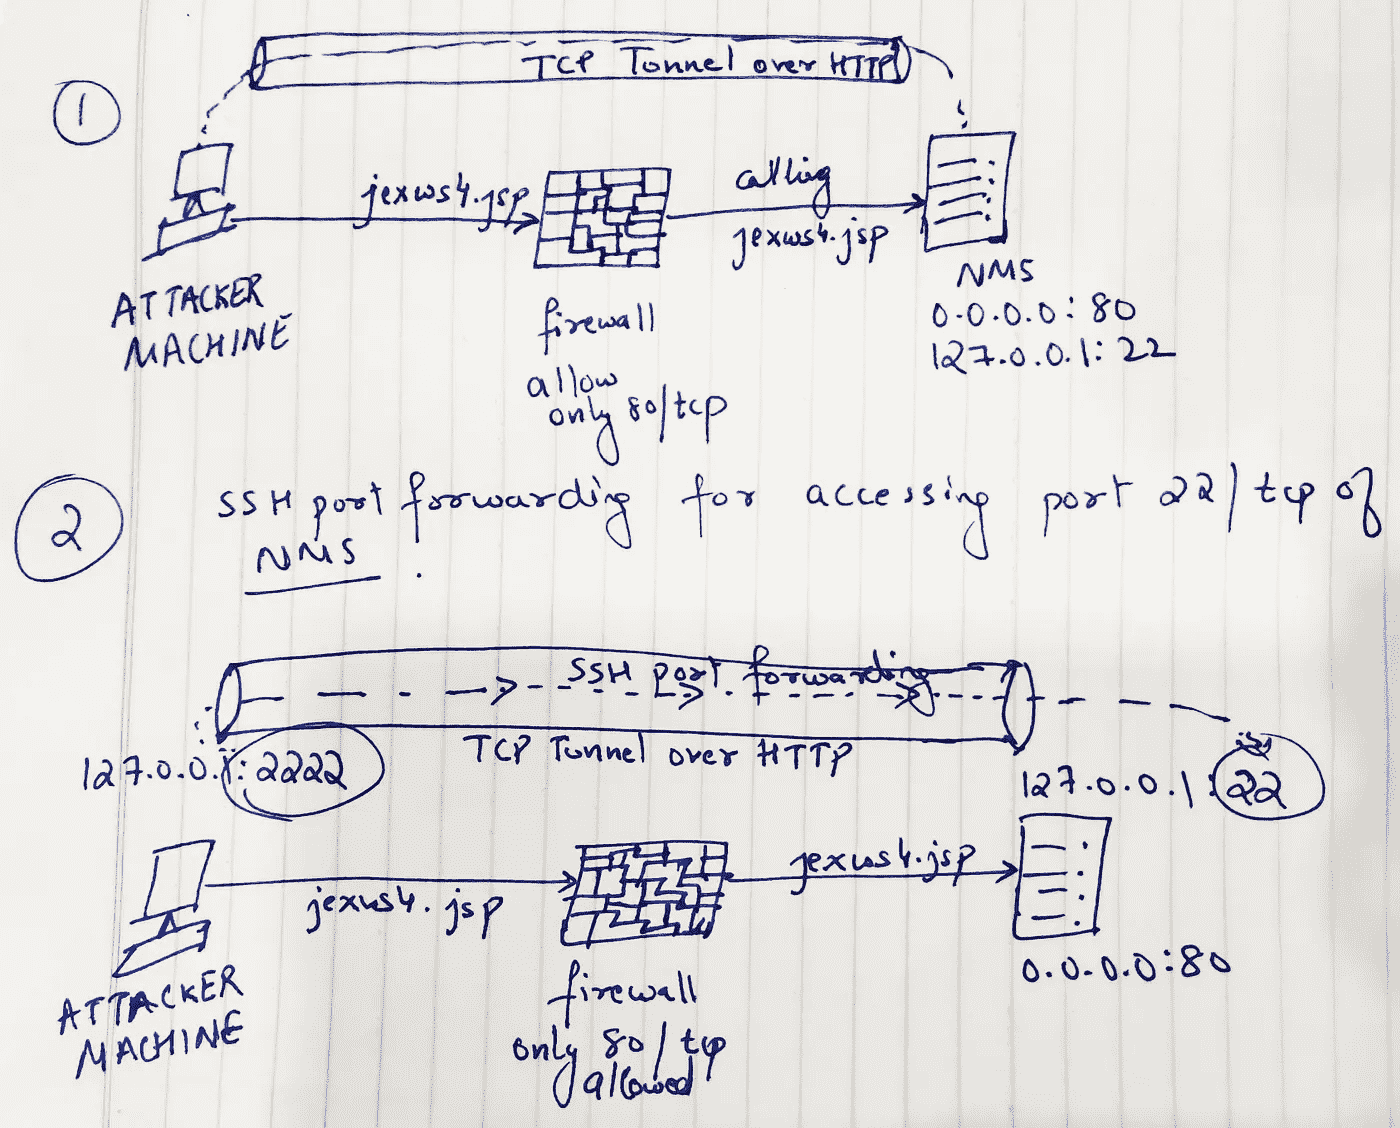 1
TCP Tunnel over HTTP
jexws4.jsp
calling
jexws4.jsp
ATTACKER
MACHINE
firewall
allow
only 80/tcp
NMS
0.0.0.0:80
127.0.0.1:22
2
SSH port forwarding for accessing port 22/tcp of
NMS.
SSH port forwarding
TCP Tunnel over HTTP
127.0.0.1:2222
127.0.0.1:22
jexws4.jsp
jexws4.jsp
ATTACKER
MACHINE
firewall
only 80/tcp
allowed
0.0.0.0:80